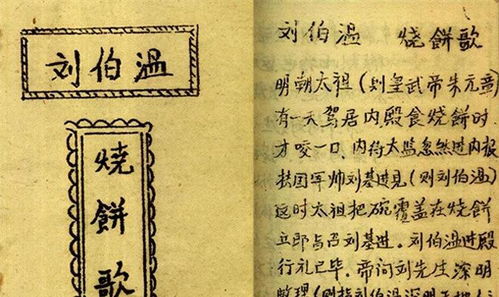 刘伯温
烧餅歌
刘伯温 烧餅歌
明朝太祖(则皇武帝朱元章)
有一天驾居内殿食烧餅时,
才咬一口、内侍太监忽然进内报
国军师刘基进見(则刘伯温)
这时太祖把碗覆盖在烧餅
立即与召刘基进.刘伯温进殿
行礼已毕.帝问刘先生深明
数理(则指刘伯温深明天地